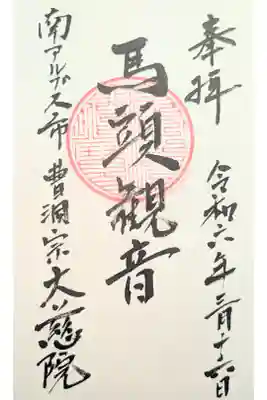 奉拝
令和六年二月十六日
馬頭観音
南アルプス市曹洞宗大慈院